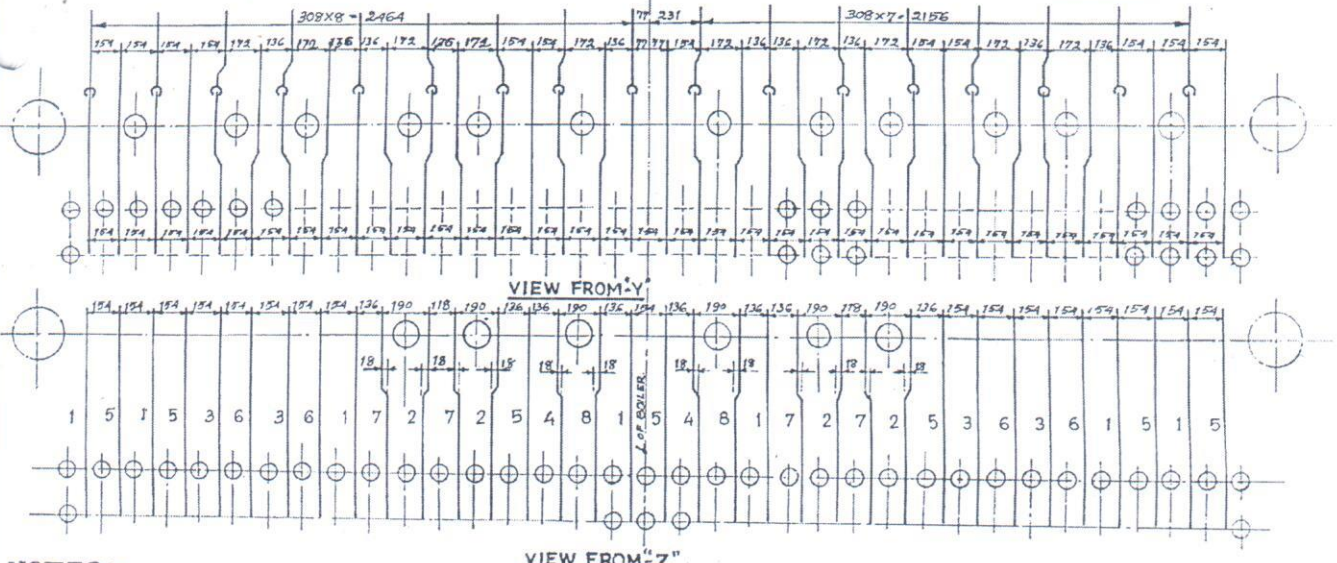 308X8 - 2464 77 231 308X7 - 2156
154 154 154 154 172 136 172 136 136 172 136 172 154 154 172 136 77 77 154 172 136 136 172 136 172 154 154 172 136 172 136 154 154 154
154 154 154 154 154 154 154 154 154 154 154 154 154 154 154 154 154 154 154 154 154 154 154 154 154 154 154 154 154 154 154 154 154
VIEW FROM "Y"
154 154 154 154 154 154 154 154 136 190 118 190 136 136 190 136 154 136 190 136 136 190 118 190 136 154 154 154 154 154 154 154 154
18 18 18 18 18 18 18 18 18
1 5 1 5 3 6 3 6 1 7 2 7 2 5 4 8 1 5 4 8 1 7 2 7 2 5 3 6 3 6 1 5 1 5
℄ OF BOILER
VIEW FROM "Z"